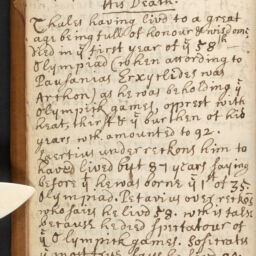 His Death.
Thales having livd to a great
age being full of honour & wisdome
died in yͤ first year of yͤ 58th
Olympiad (when according to
Pausanias Erxyclides was
Archon) as he was beholding yͤ
Olympick games, opprest with
heat, thirst & yͤ burthen of his
years wch amounted to 92.
Laertius under reckons him to
have lived but 87 years saying
before yͭ he was borne yͤ 1st of 35
Olympiad. Petavius over reckons
who saies he livd 98. wch is false
because he died spectatour of
yͤ Olympick games. Sosicrates